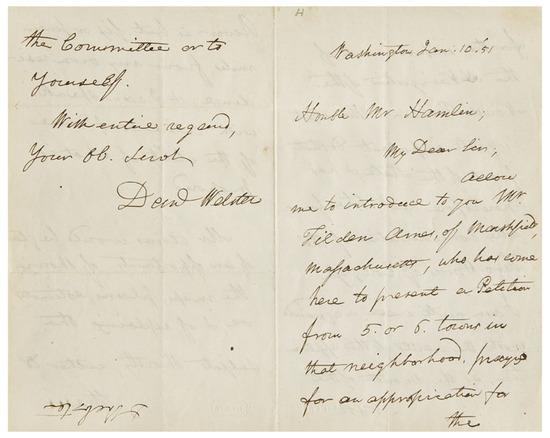 H
Washington Jan: 10. '51
Honble Mr. Hamlin;
My Dear Sir;
Allow
me to introduce to you Mr.
Tilden Ames, of Marshfield,
Massachusetts, who has come
here to present a Petition
from 5. or 6. towns in
that neighborhood, praying
for an appropriation for
the
the Committee or to
Yourself.
With entire regard,
Your ob. Servt
Danl Webster